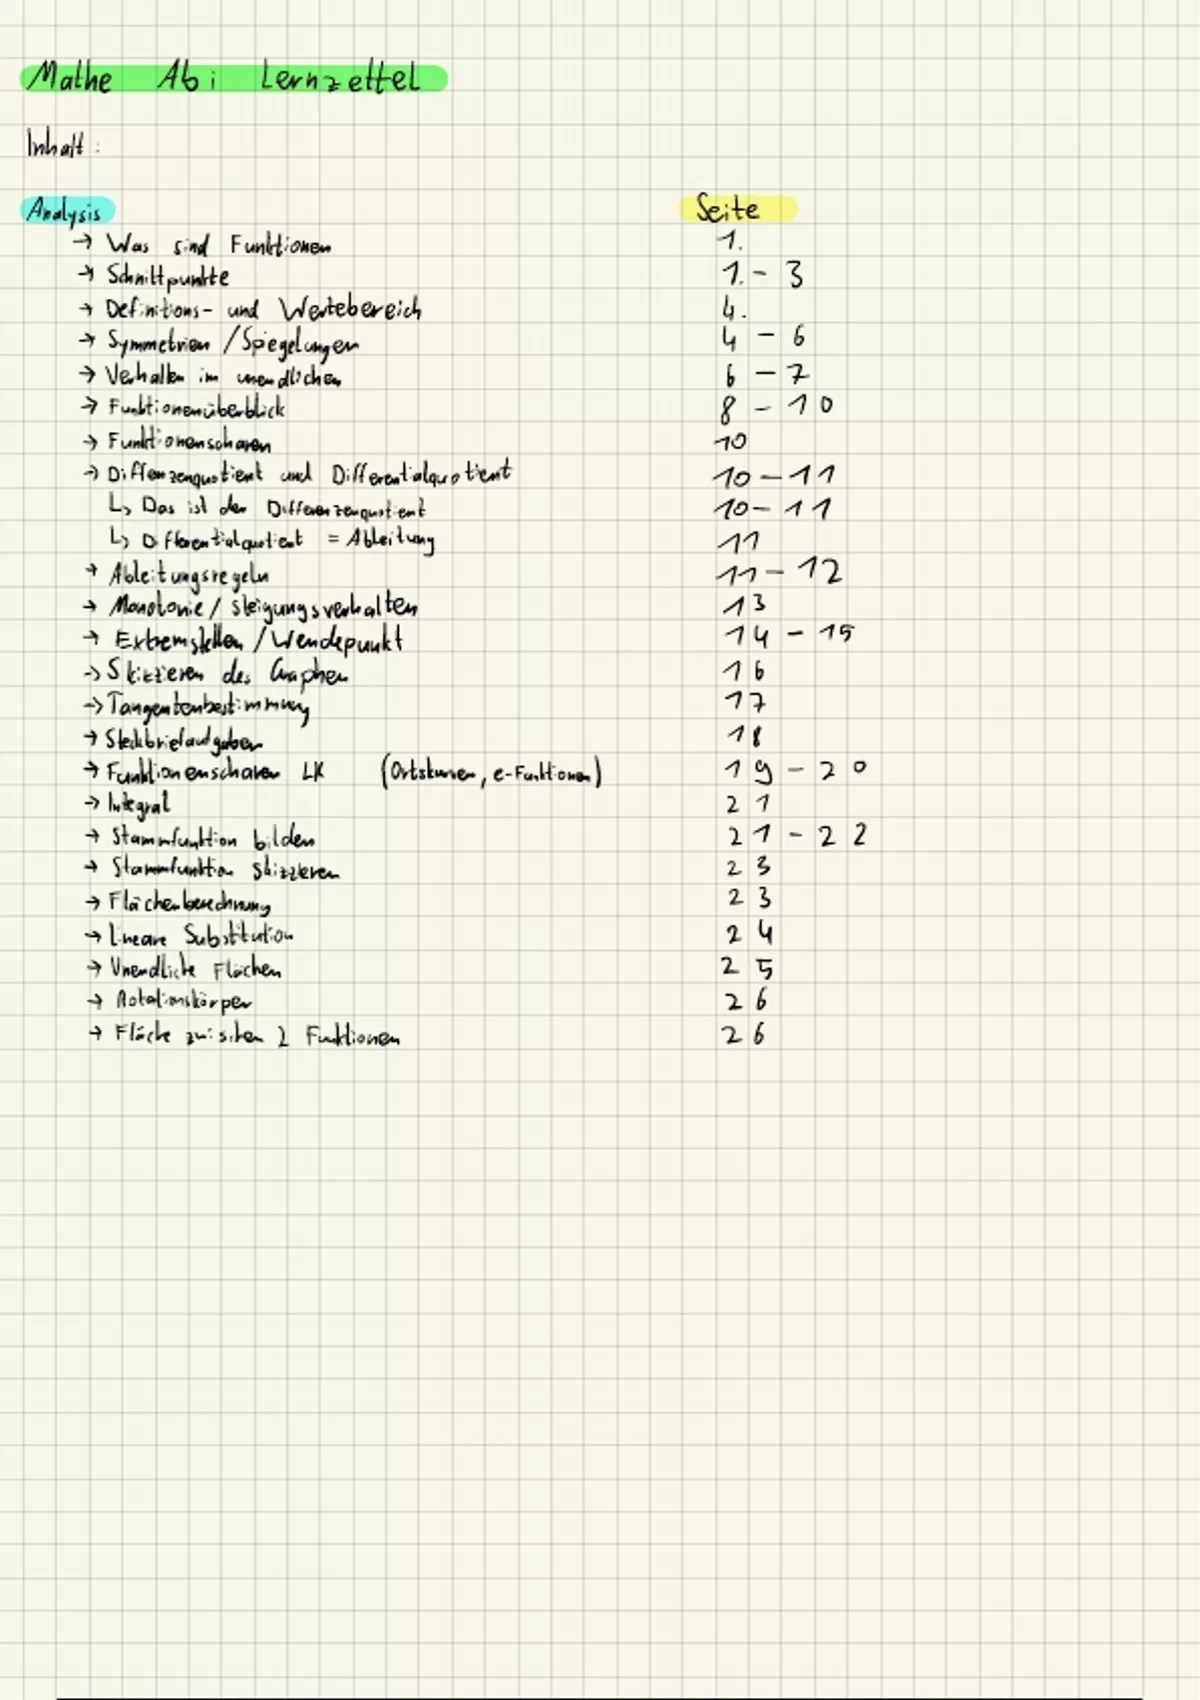 Mathe Abi Lernzettel
Inhalt :
Analysis Seite
→ Was sind Funktionen 1.
→ Schnittpunkte 1. - 3
→ Definitions- und Wertebereich 4.
→ Symmetrien / Spiegelungen 4 - 6
→ Verhalten im unendlichen 6 - 7
→ Funktionenüberblick 8 - 10
→ Funktionenscharen 10
→ Differenzenquotient und Differentialquotient 10-11
↳ Das ist der Differenzenquotient 10-11
↳ Differentialquotient = Ableitung 11
→ Ableitungsregeln 11-12
→ Monotonie / steigungsverhalten 13
→ Extremstellen / Wendepunkt 14 - 15
→ Skizzieren des Graphen 16
→ Tangentenbestimmung 17
→ Steckbriefaufgaben 18
→ Funktionenscharen LK (Ortskurven, e-Funktionen) 19 - 20
→ Integral 21
→ Stammfunktion bilden 21 - 22
→ Stammfunktion skizzieren 23
→ Flächenberechnung 23
→ Lineare Substitution 24
→ Unendliche Flächen 25
→ Rotationskörper 26
→ Fläche zwischen 2 Funktionen 26